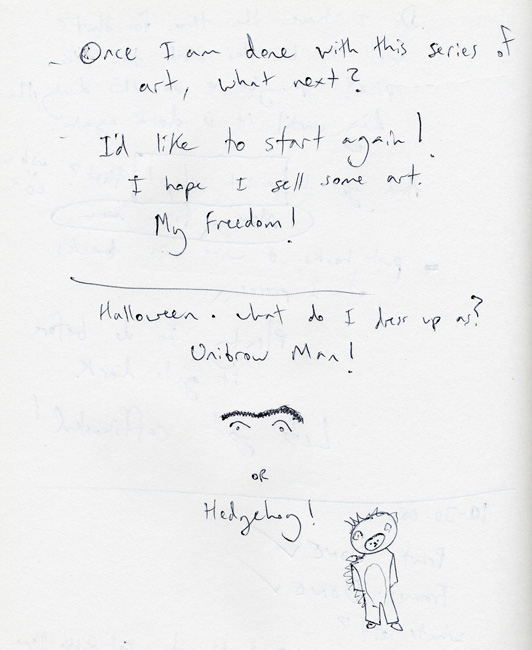 - Once I am done with this series of
art, what next?
- I'd like to start again!
I hope I sell some art.
My Freedom!
Halloween. What do I dress up as?
Unibrow Man!
OR
Hedgehog!